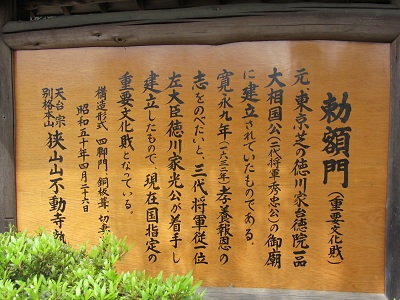 勅額門(重要文化財)
元、東京芝の徳川家台徳院一品
大相国公(二代将軍秀忠公)の御廟
に建立されていたものである。
寛永九年(一六三二年)孝養報恩の
志をのべたいと、三代将軍従一位
左大臣徳川家光公が着手し
建立したもので、現在国指定の
重要文化財となっている。
構造形式 四脚門 銅板葺 切妻
昭和五十年四月二十六日
天台宗
別格本山 狭山山不動寺